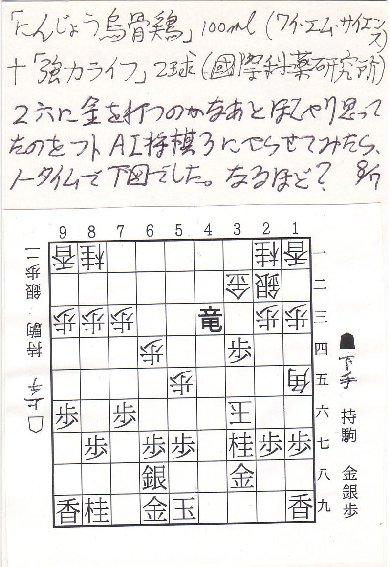 「にんじょう烏骨鶏」100ml(ワイ・エム・サイエンス)
+「強力ライフ」2球(國際科薬研究所)
2六に金を打つのかなあとぼんやり思っ
たのをソフトAI将棋3にやらせてみたら、
ノータイムで下図でした。なるほど? 8/7
9 8 7 6 5 4 3 2 1
香 桂 桂 香 一
金 銀 二
歩 歩 歩 竜 歩 歩 三
歩 歩 四
歩 角 五
歩 歩 玉 六
歩 歩 歩 桂 歩 歩 七
銀 金 八
香 桂 金 玉 香 九
上手 持駒 銀歩二
下手 持駒 金銀歩